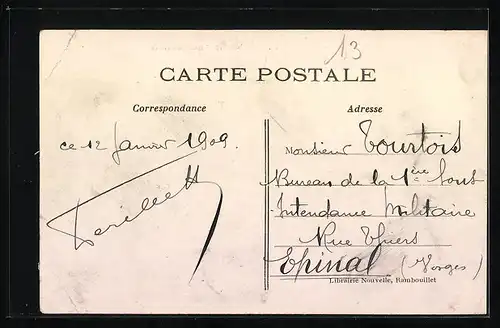 13
CARTE POSTALE
Correspondance
Adresse
ce 12 Janvier 1909.
Monsieur Tourtois
Bureau de la 1ère Sous
Intendance Militaire
Rue Thiers
Epinal (Vosges)
Librairie Nouvelle, Rambouillet